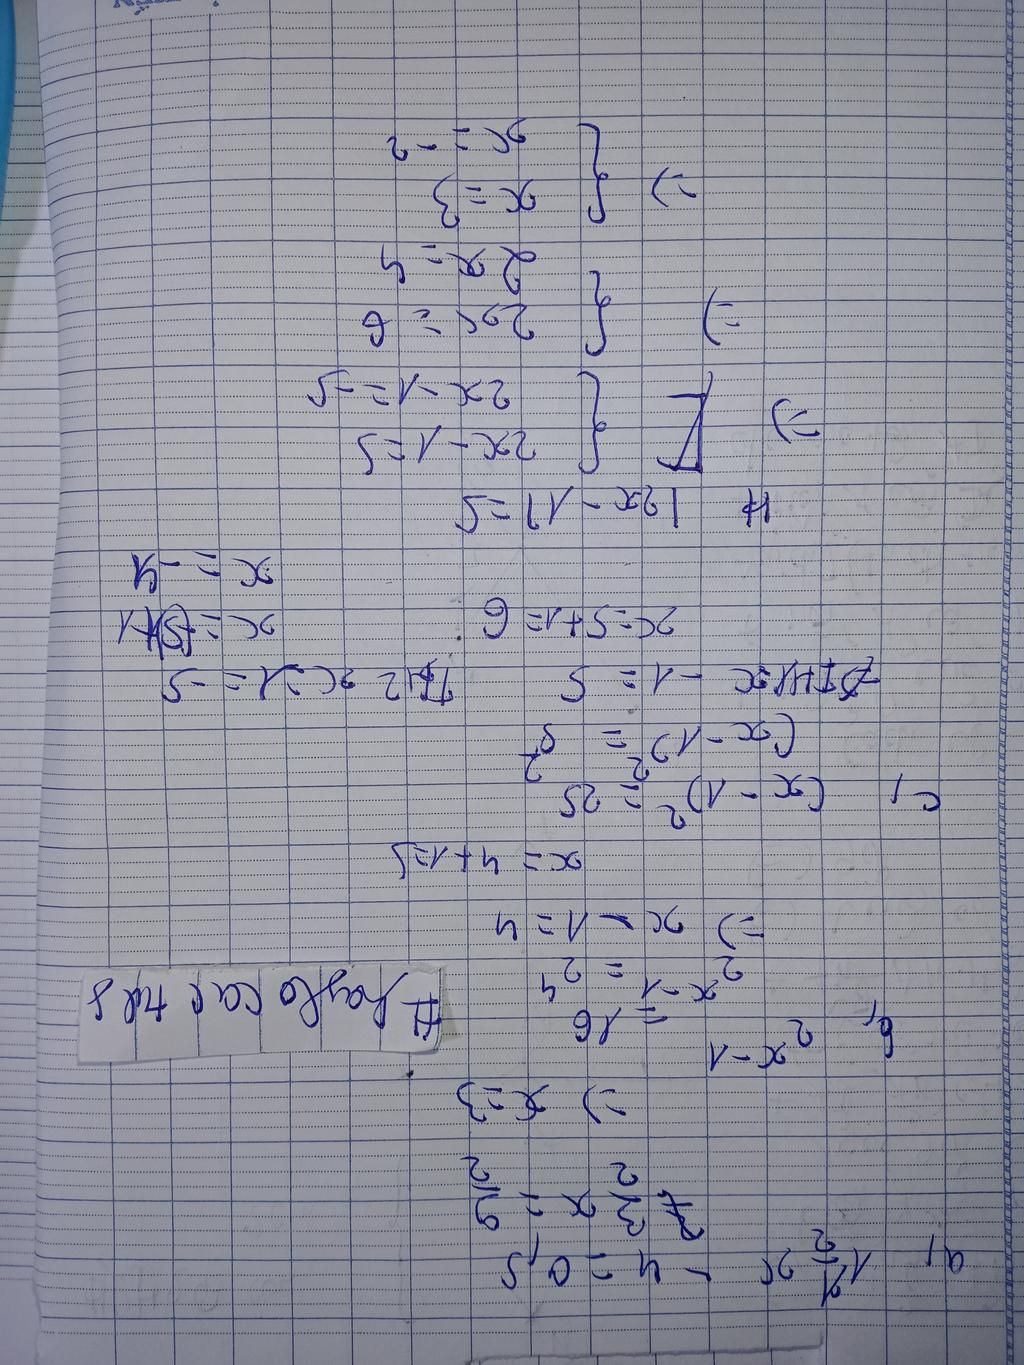 a, 1 1/2 x - 4 = 0,5
3/2 x = 9/2
=) x = 3
b, 2^x-1 = 16
2^x-1 = 2^4
=) x - 1 = 4
x = 4 + 1 = 5
c, (x - 1)^2 = 25
(x - 1)^2 = 5^2
TH1 x - 1 = 5 TH2 x - 1 = -5
x = 5 + 1 = 6 x = (-5) + 1
x = -4
|2x - 1| = 5
=) { 2x - 1 = 5
2x - 1 = -5
=) { 2x = 6
2x = 4
=) { x = 3
x = -2